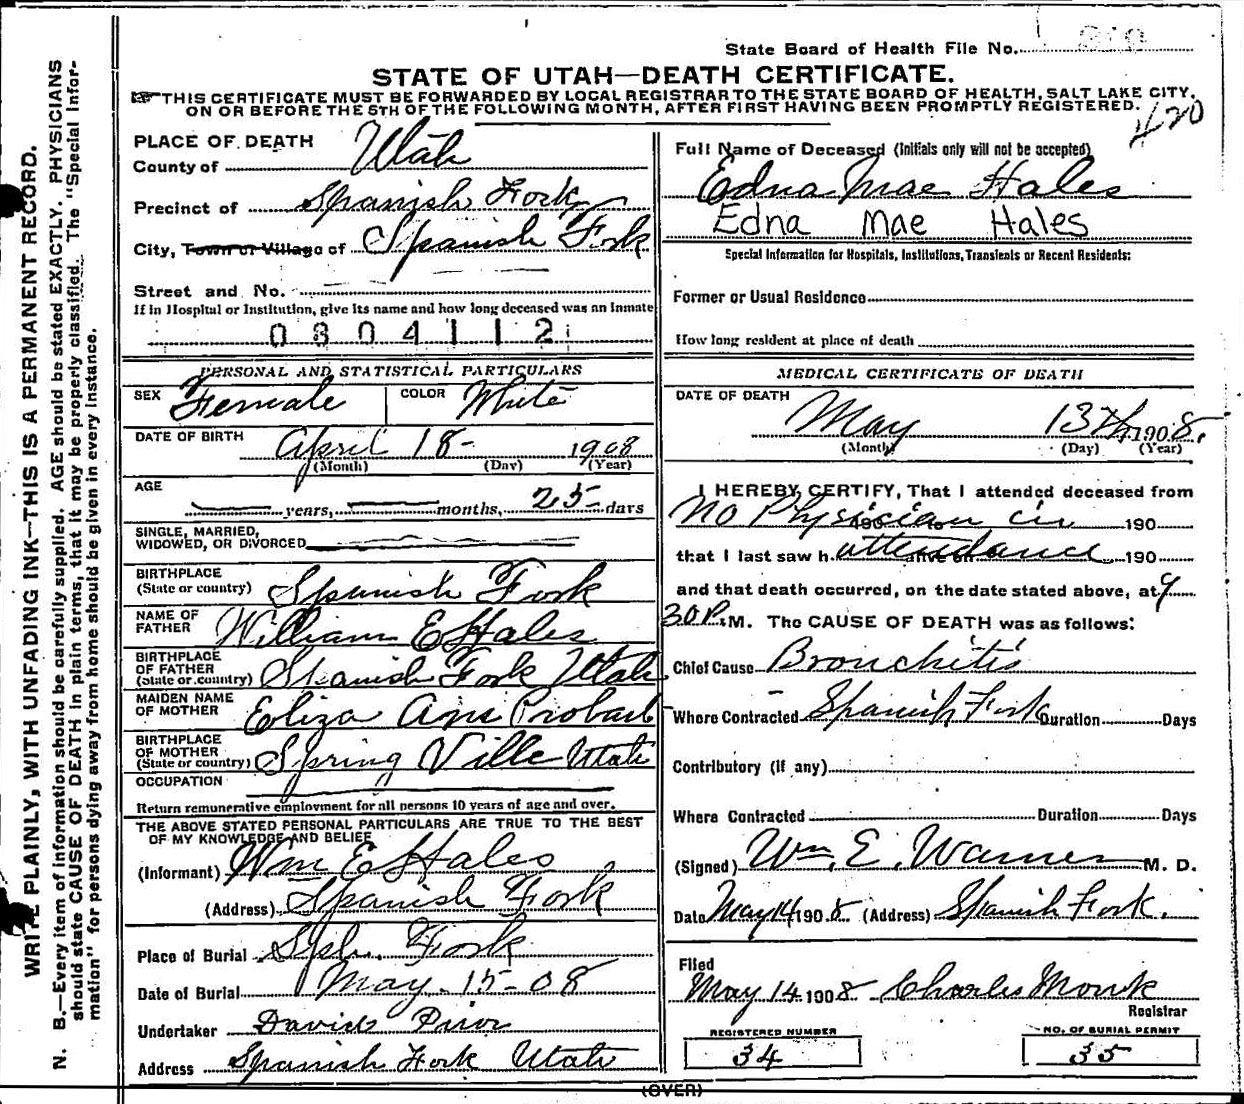 State Board of Health File No.
STATE OF UTAH—DEATH CERTIFICATE.
THIS CERTIFICATE MUST BE FORWARDED BY LOCAL REGISTRAR TO THE STATE BOARD OF HEALTH, SALT LAKE CITY,
ON OR BEFORE THE 5TH OF THE FOLLOWING MONTH, AFTER FIRST HAVING BEEN PROMPTLY REGISTERED.
420
WRITE PLAINLY, WITH UNFADING INK—THIS IS A PERMANENT RECORD.
N. B.—Every item of information should be carefully supplied. AGE should be stated EXACTLY. PHYSICIANS
should state CAUSE OF DEATH in plain terms, that it may be properly classified. The "Special Infor-
mation" for persons dying away from home should be given in every instance.
PLACE OF DEATH
County of Utah
Precinct of Spanish Fork
City, Town or Village of Spanish Fork
Street and No.
If in Hospital or Institution, give its name and how long deceased was an inmate
0804112
PERSONAL AND STATISTICAL PARTICULARS
SEX Female COLOR White
DATE OF BIRTH April 18 - 1908
(Month) (Day) (Year)
AGE
years, months, 25 days
SINGLE, MARRIED,
WIDOWED, OR DIVORCED
BIRTHPLACE
(State or country) Spanish Fork
NAME OF
FATHER William E Hales
BIRTHPLACE
OF FATHER
(State or country) Spanish Fork Utah
MAIDEN NAME
OF MOTHER Eliza Ane
BIRTHPLACE
OF MOTHER
(State or country) Spring Ville Utah
OCCUPATION
Return remunerative employment for all persons 10 years of age and over.
THE ABOVE STATED PERSONAL PARTICULARS ARE TRUE TO THE BEST
OF MY KNOWLEDGE AND BELIEF
(Informant) Wm E Hales
(Address) Spanish Fork
Place of Burial Fork
Date of Burial May - 15 - 08
Undertaker David
Address Spanish Fork Utah
Full Name of Deceased (Initials only will not be accepted)
Edna Mae Hales
Edna Mae Hales
Special Information for Hospitals, Institutions, Transients or Recent Residents:
Former or Usual Residence
How long resident at place of death
MEDICAL CERTIFICATE OF DEATH
DATE OF DEATH
May 13th 1908.
(Month) (Day) (Year)
I HEREBY CERTIFY, That I attended deceased from
No Physician in 190
that I last saw h attendance 190
and that death occurred, on the date stated above, at 9
30 P. M. The CAUSE OF DEATH was as follows:
Chief Cause Bronchitis
Where Contracted Spanish Fork Duration Days
Contributory (if any)
Where Contracted Duration Days
(Signed) Wm. E. Warner M. D.
Date May 14 1908 (Address) Spanish Fork.
Filed
May 14 1908 Charles Monk
Registrar
REGISTERED NUMBER
34
NO. OF BURIAL PERMIT
35
(OVER)